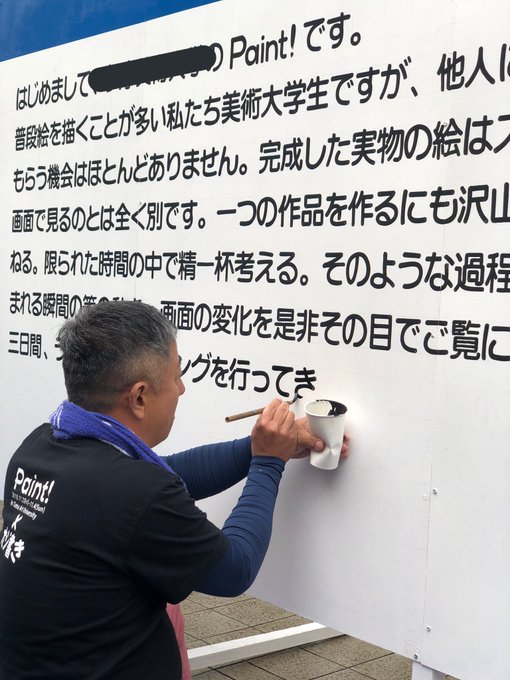 はじめまして のPaint!です。
普段絵を描くことが多い私たち美術大学生ですが、他人に
もらう機会はほとんどありません。完成した実物の絵は
画面で見るのとは全く別です。一つの作品を作るにも沢山
ねる。限られた時間の中で精一杯考える。そのような過程
まれる瞬間の 画面の変化を是非その目でご覧に
三日間、 ングを行ってき
Paint!